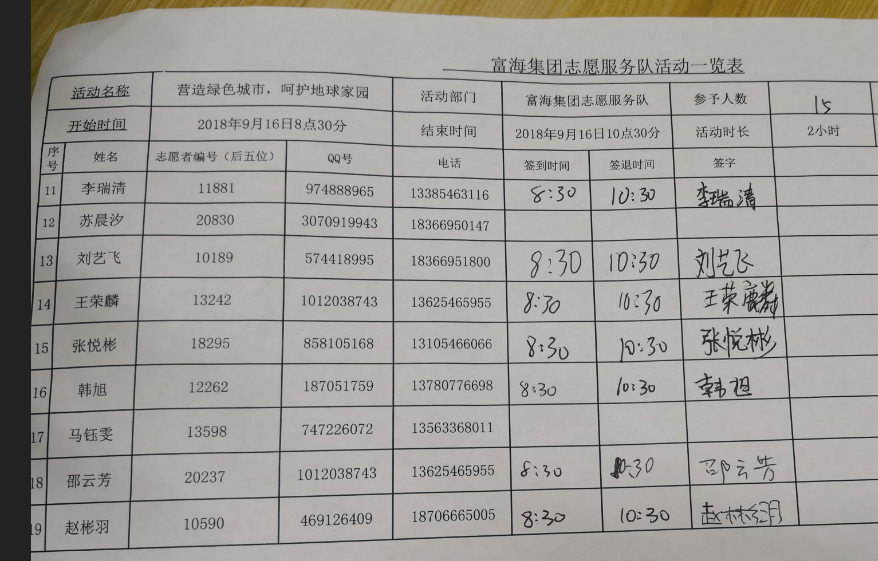 富海集团志愿服务队活动一览表
活动名称 营造绿色城市，呵护地球家园 活动部门 富海集团志愿服务队 参予人数 15
开始时间 2018年9月16日8点30分 结束时间 2018年9月16日10点30分 活动时长 2小时
序号 姓名 志愿者编号（后五位） QQ号 电话 签到时间 签退时间 签字
11 李瑞清 11881 974888965 13385463116 8:30 10:30 李瑞清
12 苏晨汐 20830 3070919943 18366950147
13 刘艺飞 10189 574418995 18366951800 8:30 10:30 刘艺飞
14 王荣麟 13242 1012038743 13625465955 8:30 10:30 王荣麟
15 张悦彬 18295 858105168 13105466066 8:30 10:30 张悦彬
16 韩旭 12262 187051759 13780776698 8:30 10:30 韩旭
17 马钰雯 13598 747226072 13563368011
18 邵云芳 20237 1012038743 13625465955 8:30 10:30 邵云芳
19 赵彬羽 10590 469126409 18706665005 8:30 10:30